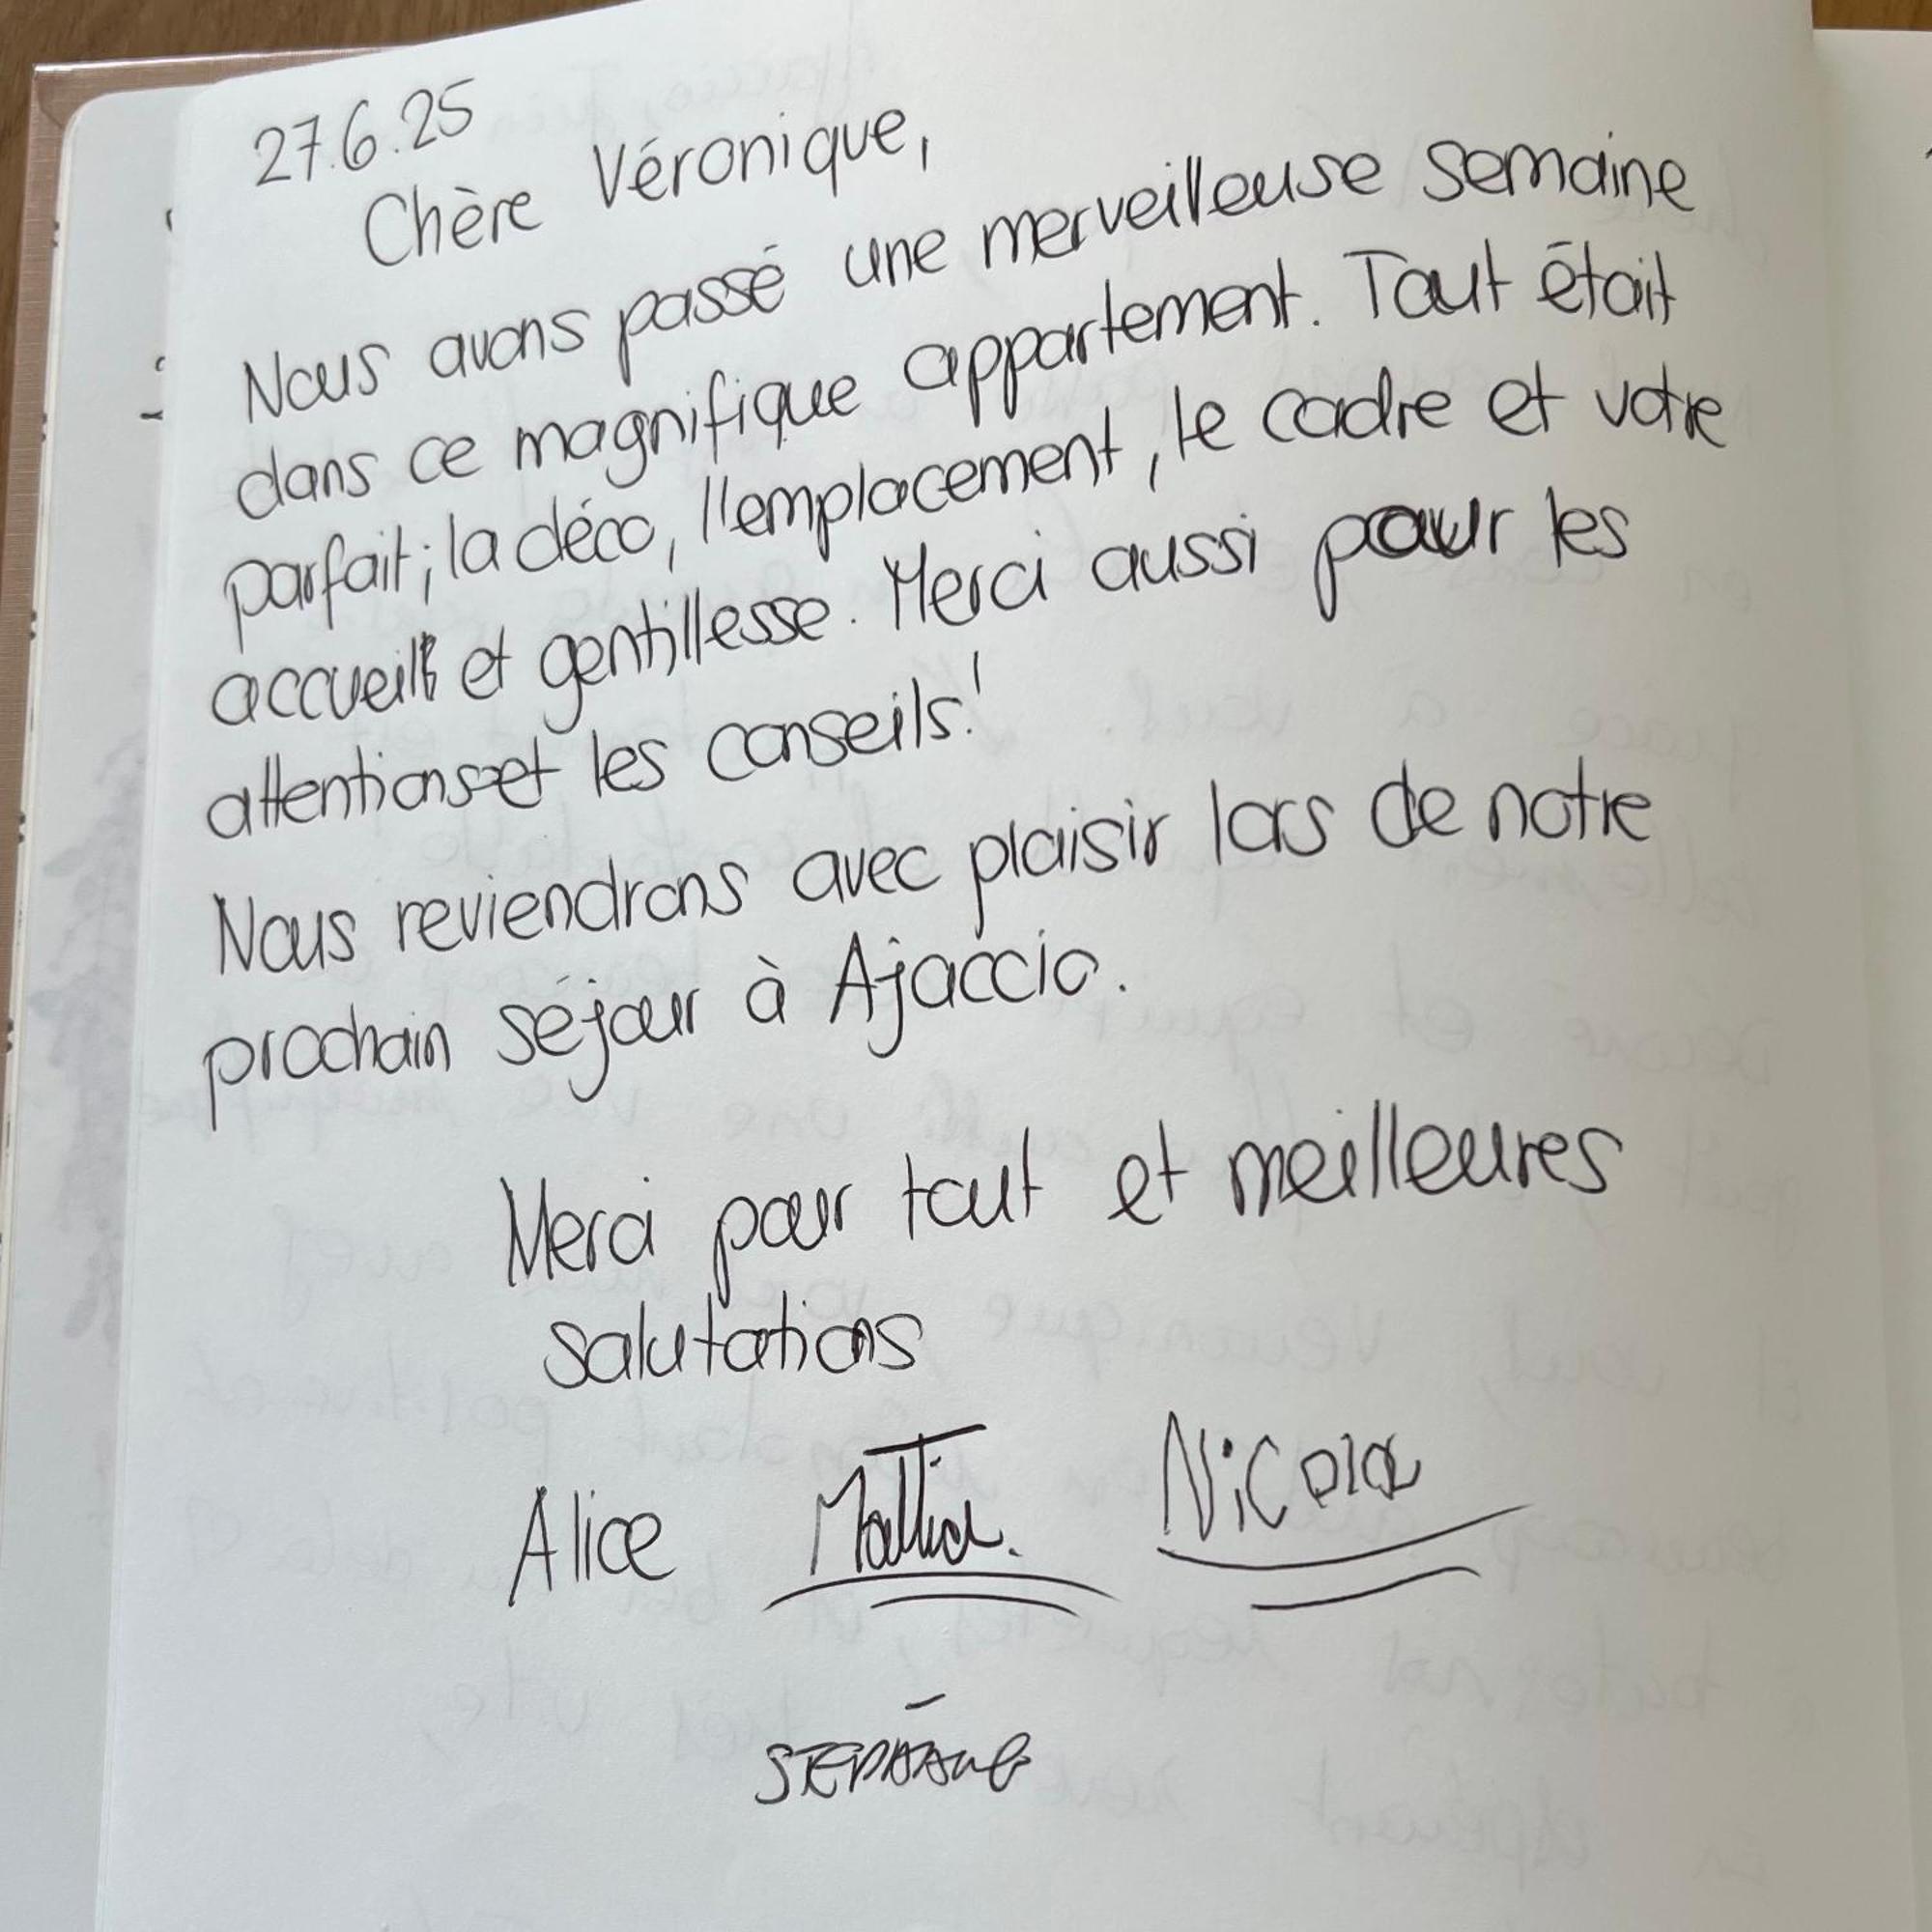 27.6.25
Chère Véronique,
Nous avons passé une merveilleuse semaine
dans ce magnifique appartement. Tout était
parfait; la déco, l'emplacement, le cadre et votre
accueil et gentillesse. Merci aussi pour les
attentions et les conseils!
Nous reviendrons avec plaisir lors de notre
prochain séjour à Ajaccio.
Merci pour tout et meilleures
salutations
Alice Mattia. Nicola
STEPHANE